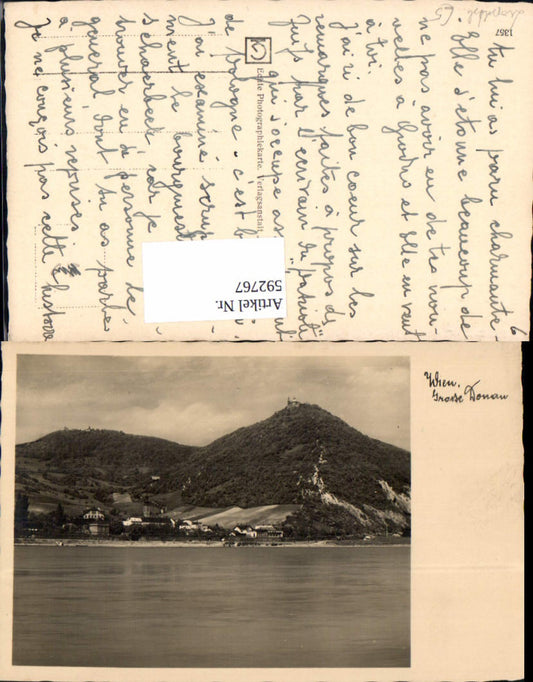 1357
6
tu lui as paru charmante.
Elle s'étonne beaucoup de
ne pas avoir eu de tes nou-
velles à Gudrs et elle en veut
à toi.
J'ai ri de bon coeur sur les
remarques faites à propos des
Juifs par l'écrivain du "patriote"
qui s'occupe
de bologne. c'est
J'ai examiné
ment le bourgmest
schaerbeek, car je
trouver en personne le
général dont tu as parlé
à plusieurs reprises
Je ne conçois pas cette histoire
Echte Photographiekarte. Verlagsanstalt
Artikel Nr.
592767
Wien.
Grosse Donau